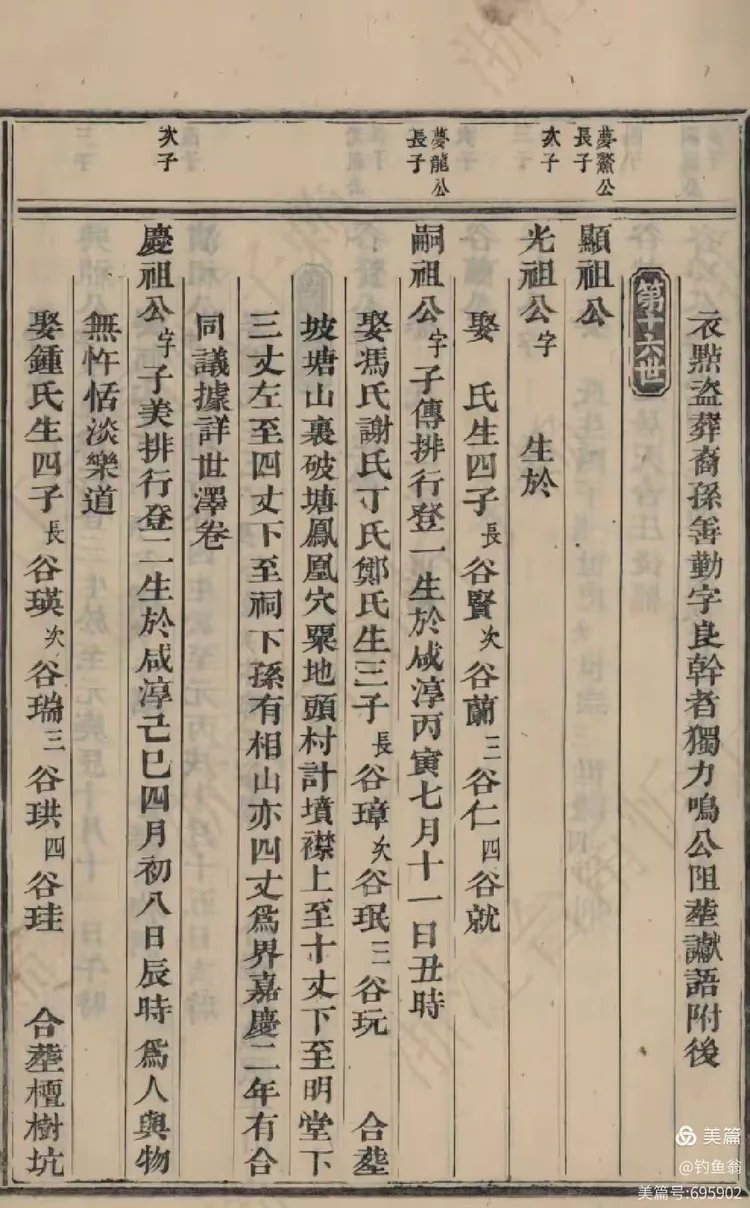 衣㸃盗葬裔孫善勤字良幹者獨力鳴公阻塟讞語附後
第十六世
夢鰲公長子
顯祖公
次子
光祖公字 生於
娶 氏生四子長谷賢次谷蘭三谷仁四谷就
夢龍公長子
嗣祖公字子傳排行登一生於咸淳丙寅七月十一日丑時
娶馮氏謝氏丁氏鄭氏生三子長谷璋次谷珉三谷玩 合塟
坡塘山裏破塘鳳凰穴粟地頭村計墳襟上至十丈下至明堂下
三丈左至四丈下至祠下孫有相山亦四丈爲界嘉慶二年有合
同議據詳世澤卷
次子
慶祖公字子美排行登二生於咸淳己巳四月初八日辰時 爲人與物
無忤恬淡樂道
娶鍾氏生四子長谷瑛次谷瑞三谷珙四谷珪 合塟檀樹坑
美篇
@钓鱼翁
美篇号:695902